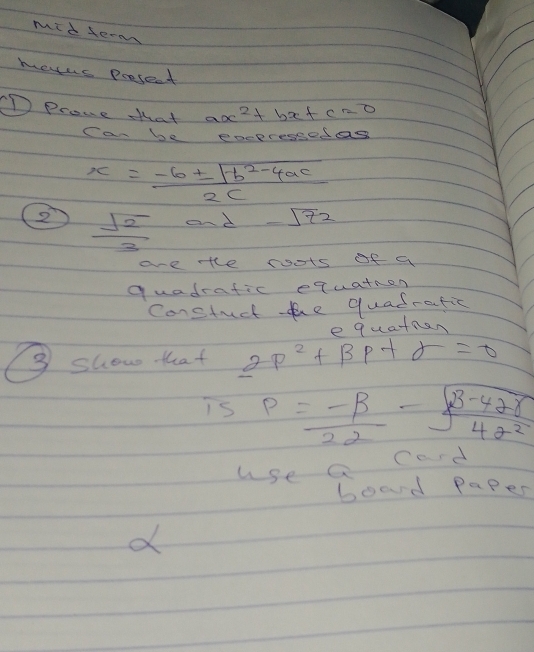 mid term
maths Project
① Prove that ax² + bx + c = 0
can be expressed as
x = -b ± √b² - 4ac / 2c
② √2 / 3 and -√72
are the roots of a
quadratic equation
Constuct the quadratic
equation
③ Show that αP² + βP + γ = 0
is P = -β / 2α - √β - 4αγ / 4α²
use a card
board paper
α